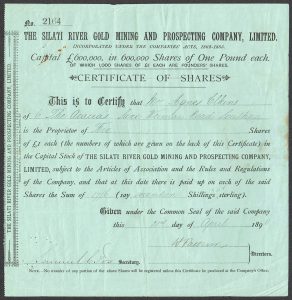 No. 2164
THE SILATI RIVER GOLD MINING AND PROSPECTING COMPANY, LIMITED.
INCORPORATED UNDER THE COMPANIES ACTS, 1862-1883.
Capital £600,000, in 600,000 Shares of One Pound each.
OF WHICH 1,000 SHARES OF £1 EACH ARE FOUNDERS' SHARES.
CERTIFICATE OF SHARES
This is to Certify that
of 6 The
is the Proprietor of Shares
of £1 each (the numbers of which are given on the back of this Certificate), in the
Capital Stock of THE SILATI RIVER GOLD MINING AND PROSPECTING COMPANY,
LIMITED, subject to the Articles of Association and the Rules and Regulations
of the Company, and that at this date there is paid up on each of the said
Shares the Sum of (say Shillings sterling).
Given under the Common Seal of the said Company
this day of April 189
Directors.
Secretary.
NOTE.—No transfer of any portion of the above Shares will be registered unless this Certificate be produced at the Company's Office.
THE SILATI RIVER GOLD MINING AND PROSPECTING COMPANY, LIMITED.